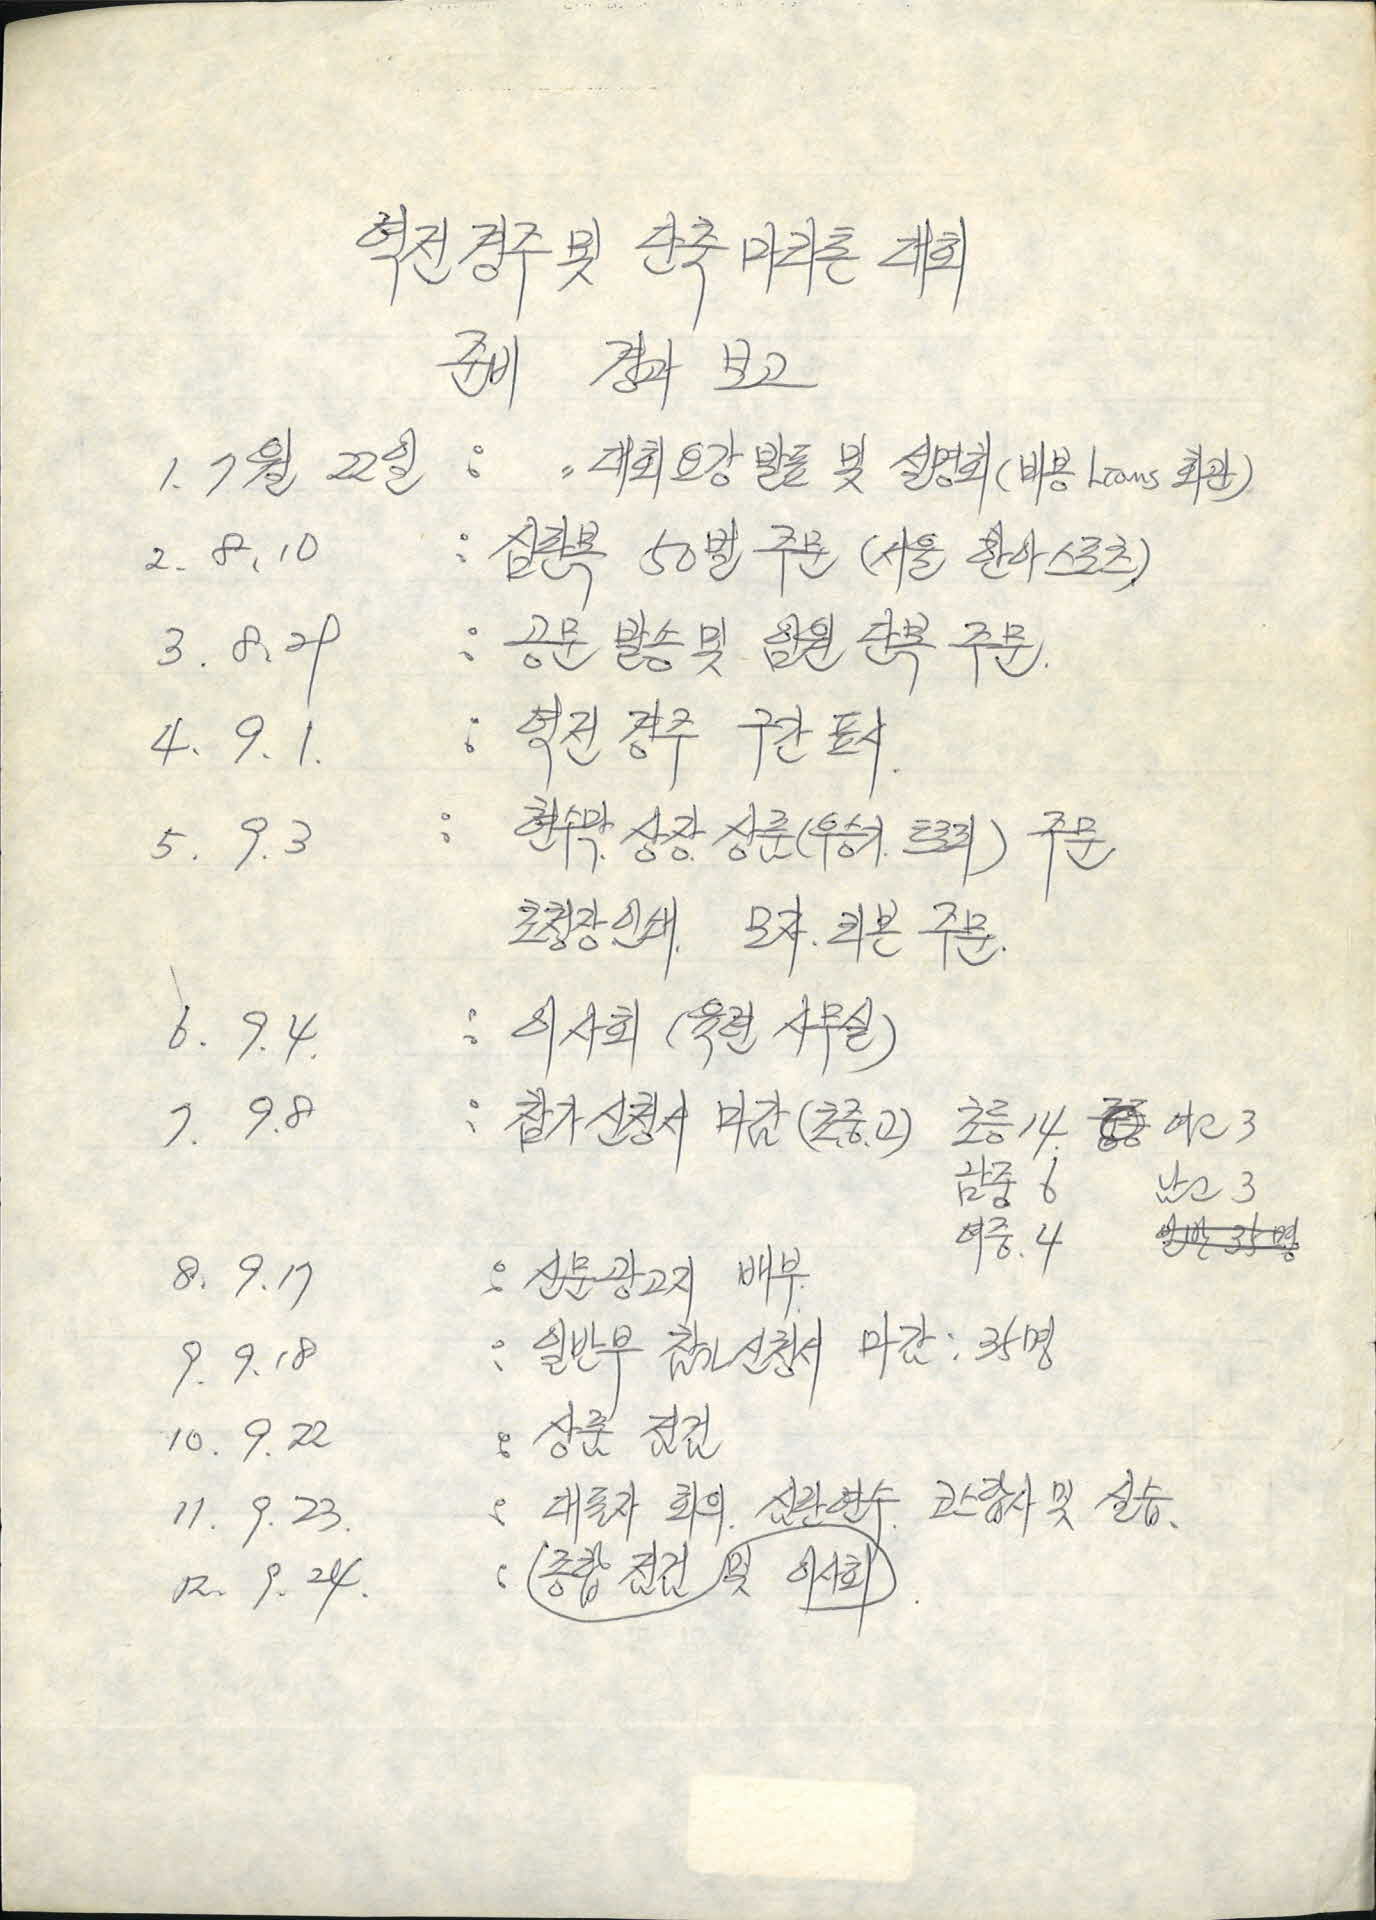 역전경주 및 단축 마라톤 대회
준비 경과 보고
1. 7월 22일 : 대회요강 발표 및 설명회(비봉 Lions 회관)
2. 8.10 : 심판복 50벌 주문 (서울 환아스포츠)
3. 8.29 : 공문 발송 및 임원 단복 주문.
4. 9.1. : 역전 경주 구간 표시.
5. 9.3 : 현수막. 상장. 상품(우승기. 트로피) 주문
초청장 인쇄. 모자. 리본 주문.
6. 9.4. : 이사회 (육련 사무실)
7. 9.8 : 참가신청서 마감(초.중.고) 초등 14. 여고 3
남중 6 남고 3
여중. 4 일반 35명
8. 9.17 : 신문광고지 배부.
9. 9.18 : 일반부 참가신청서 마감 : 35명
10. 9.22 : 상품 점검
11. 9.23. : 대표자 회의. 심판연수. 코스답사 및 실습.
12. 9.24. : (종합 점검 및 이사회).